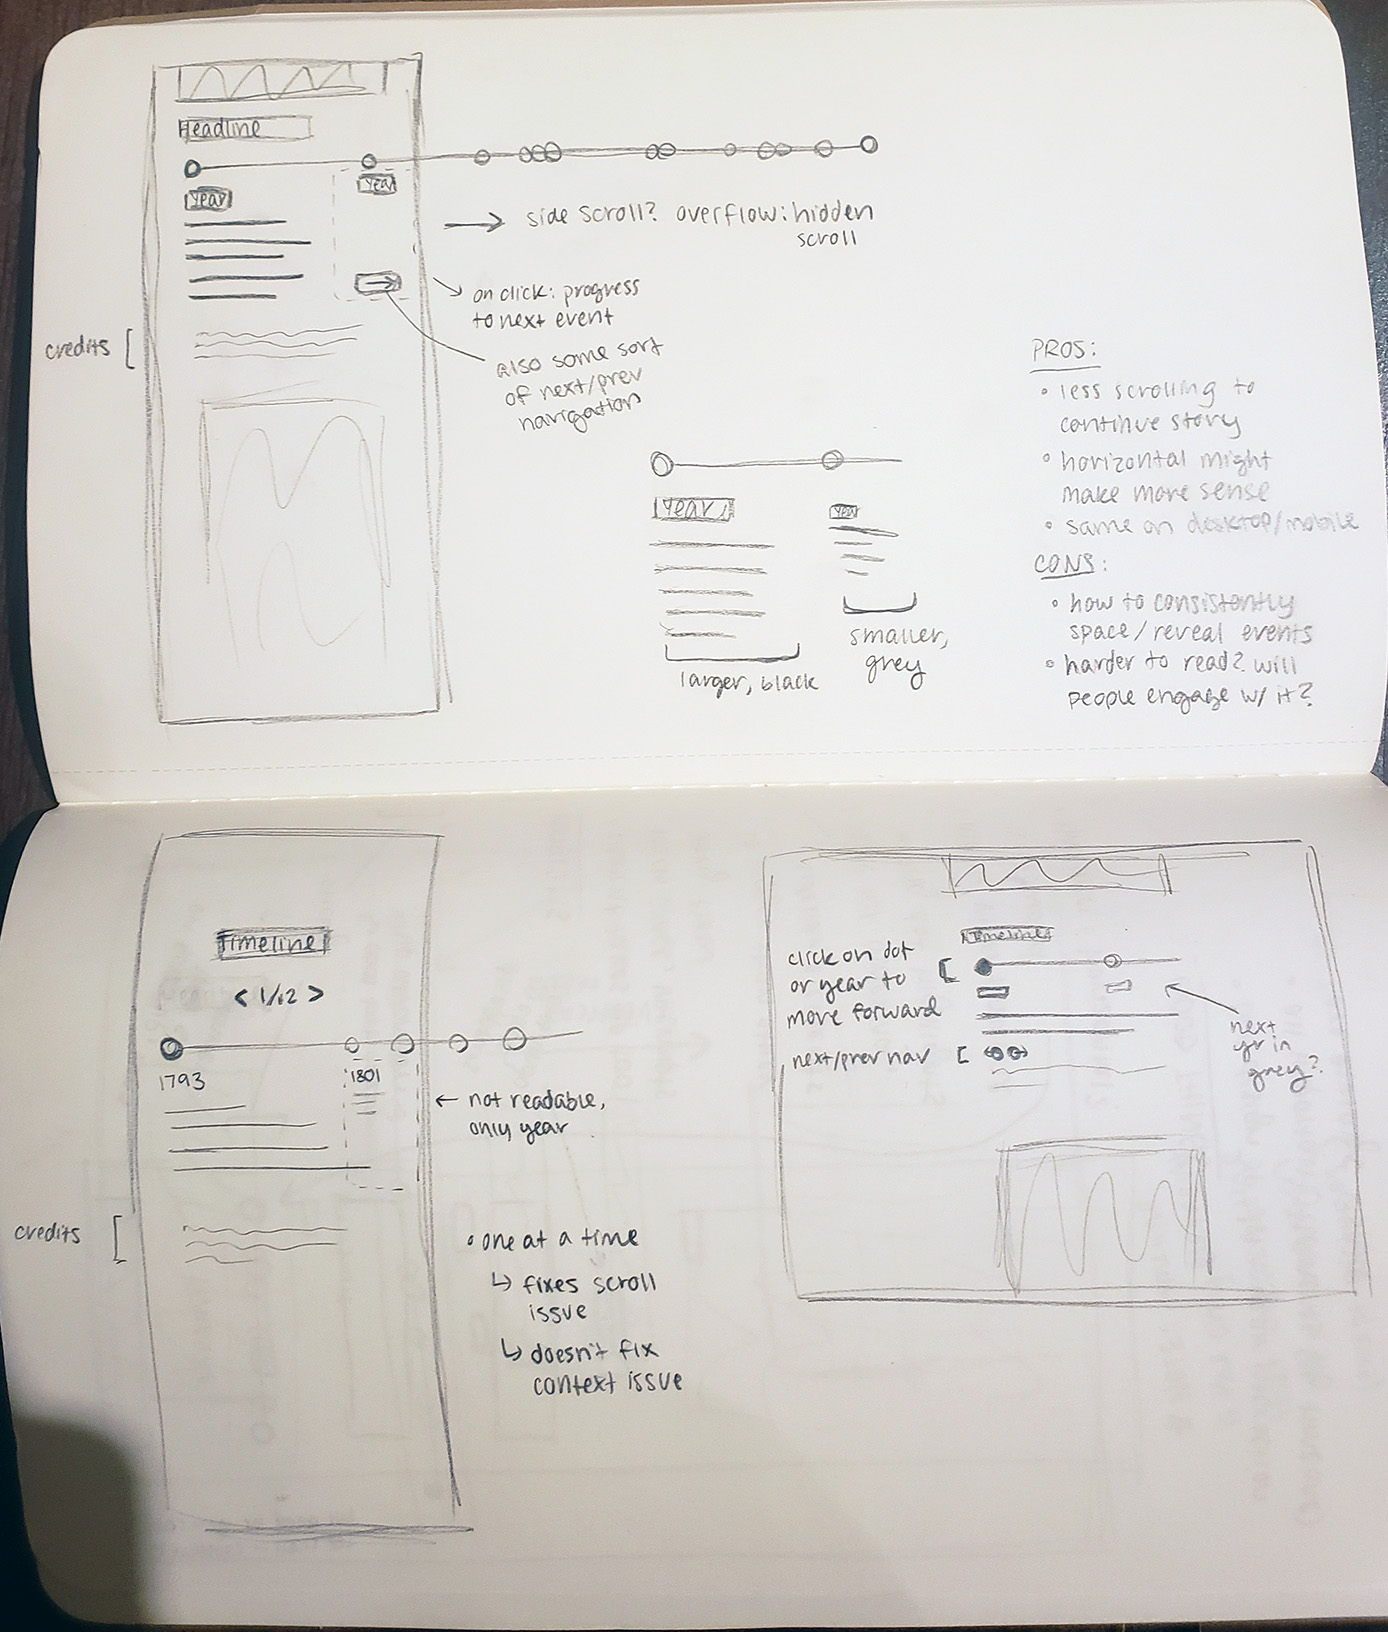 Headline
Year
Year
→ side scroll? overflow: hidden
scroll
on click: progress
to next event
also some sort
of next/prev
navigation
credits
Year
Year
larger, black
smaller,
grey
PROS:
• less scrolling to
continue story
• horizontal might
make more sense
• same on desktop/mobile
CONS:
• how to consistently
space/reveal events
• harder to read? will
people engage w/ it?
Timeline
< 1/12 >
1793
1801
← not readable,
only year
credits
• one at a time
↳ fixes scroll
issue
↳ doesn't fix
context issue
Timeline
click on dot
or year to
move forward
next/prev nav
next
yr in
grey?